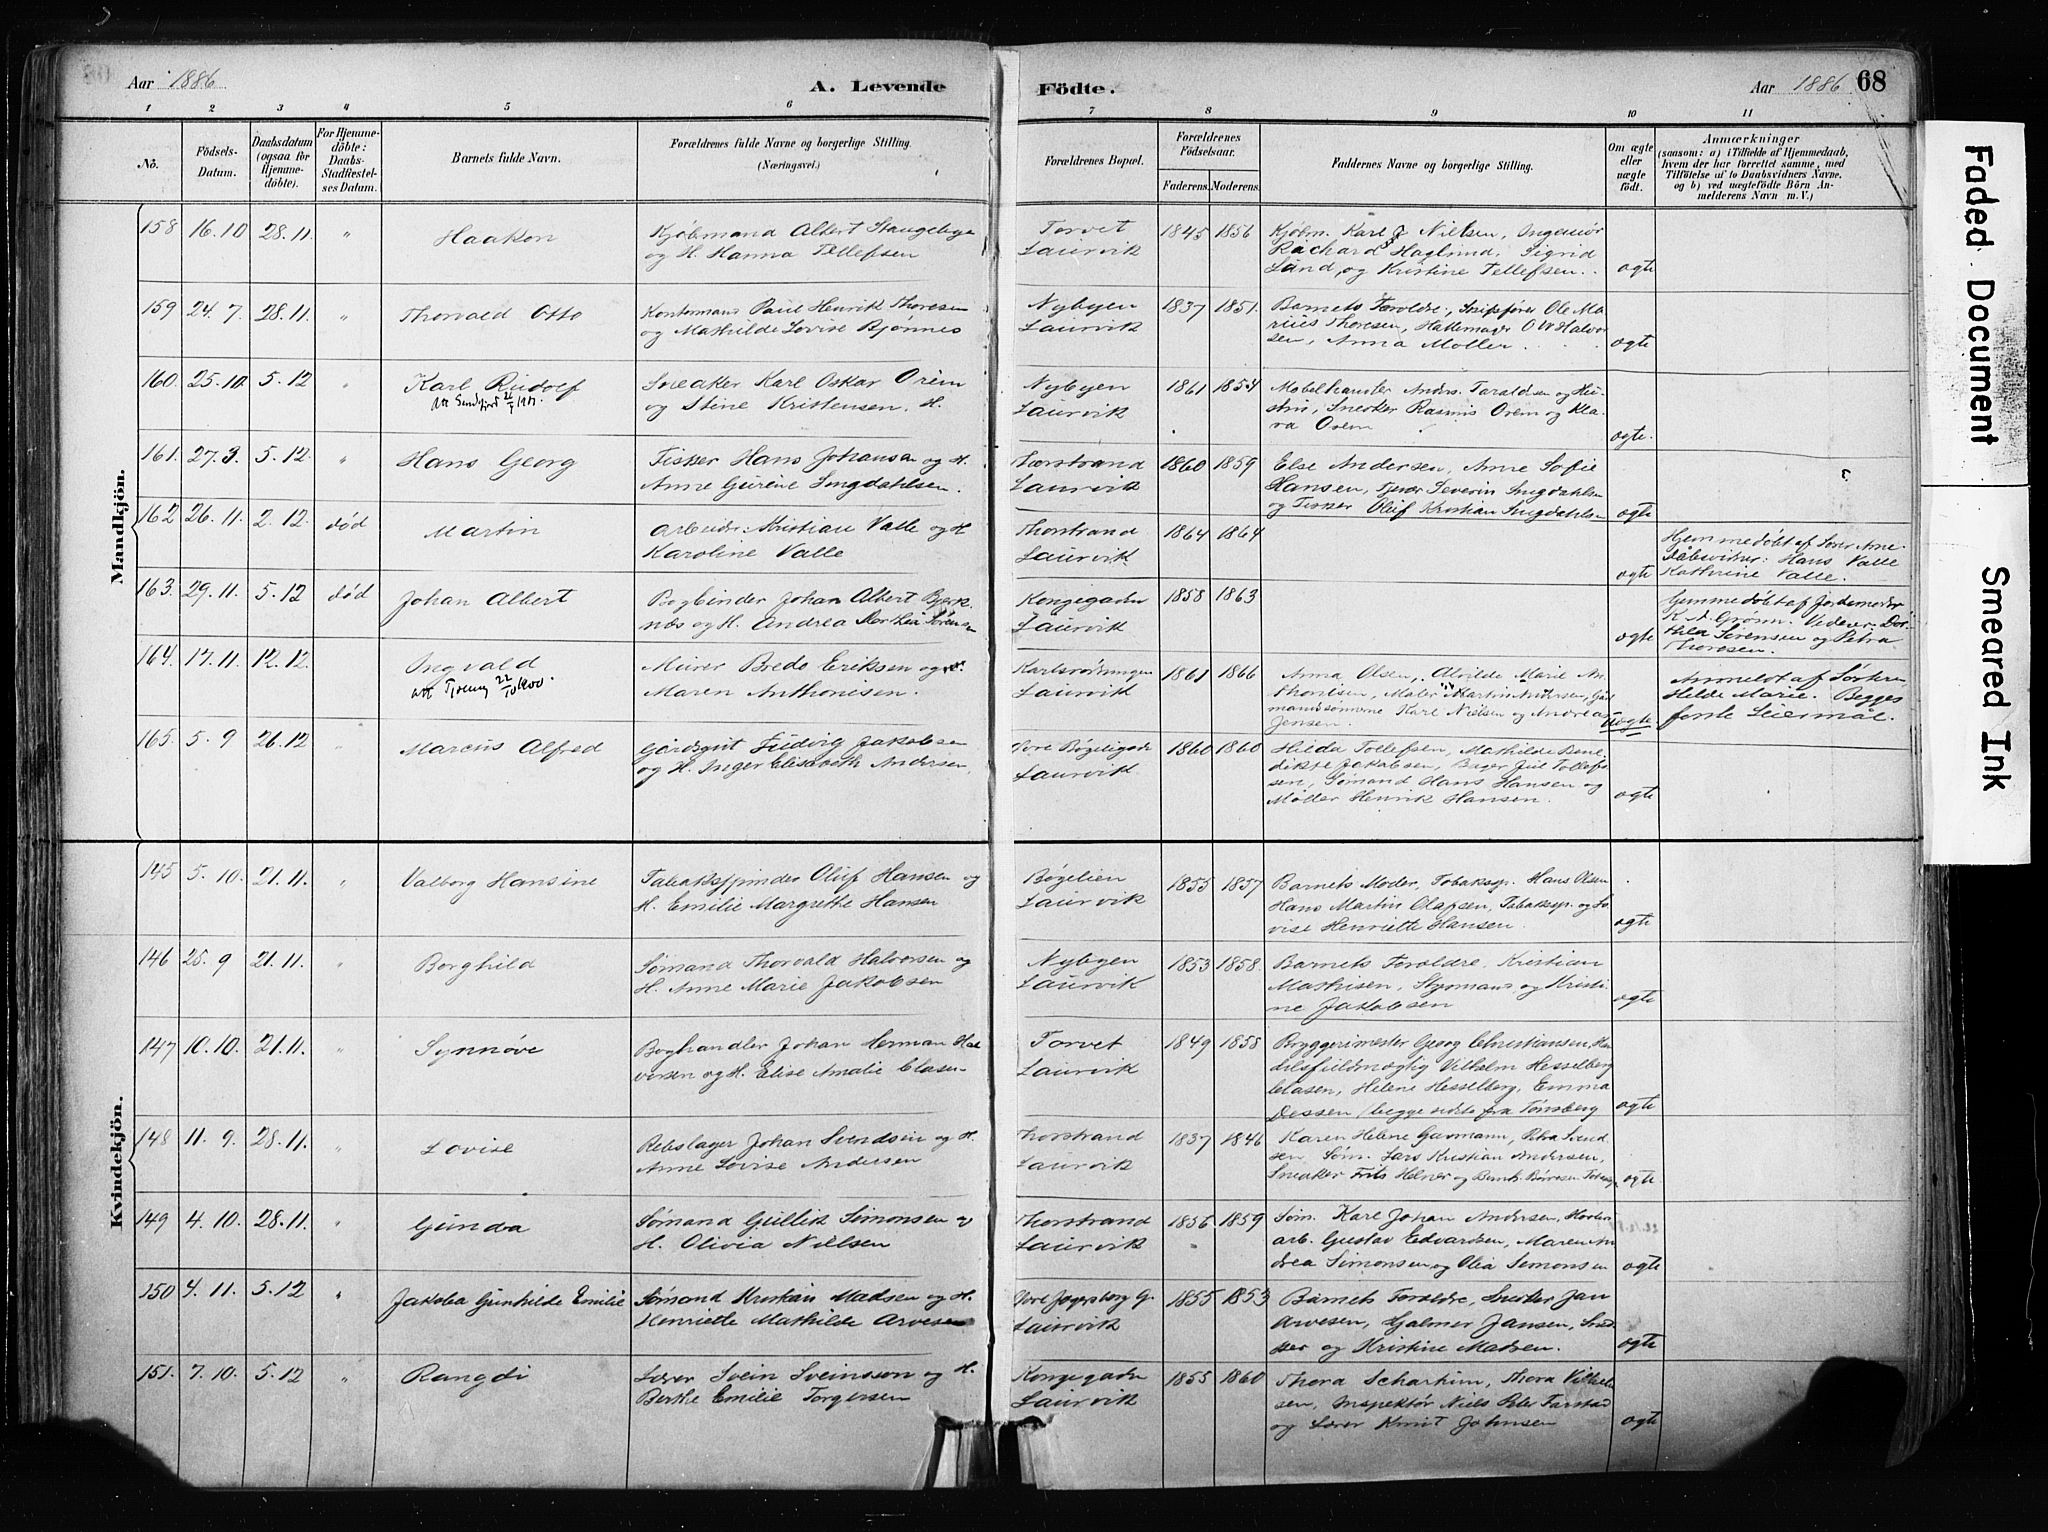 Aar 1886
A. Levende
Födte.
Aar 1886 68
1 2 3 4 5 6 7 8 9 10 11
No. Födsels-Datum. Daabsdatum (ogsaa for Hjemmedöbte). For Hjemmedöbte: Daabs-Stadfæstelses Datum. Barnets fulde Navn. Forældrenes fulde Navne og borgerlige Stilling. (Næringsvei.) Forældrenes Bopæl. Forældrenes Födselsaar. Faderens. Moderens. Faddernes Navne og borgerlige Stilling. Om ægte eller uægte födt. Anmærkninger (saasom: a) i Tilfælde af Hjemmedaab, hvem der har forrettet samme, med Tilföielse af to Daabsvidners Navne, og b) ved uægtefödte Börn Anmelderens Navn m. V.)
Mandkjön.
158 16.10 28.11. " Haakon Kjøbmand Albert Staugebye Torvet 1845 1856 Kjøbm. Karl J Nielsen, Ingeniør
og H. Hanna Tellefsen Laurvik Richard Haglund, Sigrid
Lund, og Kristine Tellefsen. ægte
159 24.7. 28.11. " Thorvald Otto Kontormand Paul Henrik Thoresen Nybyen 1837 1851. Barnets Forældre, Ole Ma
og Mathilde Lovise Bjønnes Laurvik rius Thoresen, Hattemager O Halvor
sen, Anna Møller. ægte
160. 25.10. 5.12 " Karl Rudolf Snedker Karl Oskar Orem Nybyen 1861 1854 Møbelhandler Anders Taraldsen og Hu
og Stine Kristensen. H. Laurvik stru, Snedker Rasmus Orem og Kla
ra Orem ægte.
161. 27.3. 5.12. " Hans Georg Fisker Hans Johansen og H. Thorstrand 1860 1859 Else Andersen, Anne Sofie
Anne Gurine Ingdahlsen. Laurvik Hansen, Severin Ingdahlsen
og Fisker Oluf Kristian Ingdahlsen ægte
162 26.11. 2.12. død Martin Arbeider Kristian Valle og H Thorstrand 1864 1864 Hjemmedøbt af
Karoline Valle Laurvik. Dåbsvidner: Hans Valle
ægte Kathrine Valle.
163. 29.11. 5.12 død Johan Albert Bogbinder Johan Albert Bjerk- Kongegaden 1858 1863 Hjemmedøbt af Jordemoder
næs og H. Andrea Dorthea Sørensen Laurvik Grønn. Vidner: Dor
ægte thea Sørensen og Petra
Thoresen.
164. 17.11. 12.12. Ingvald Murer Brede Eriksen og Karlsrødningen 1861 1866 Anna Olsen, Alvilde Marie An Anmeldt af
Maren Anthonisen. Laurvik thonisen, Maler Martin Andersen, Hilde Marie. Begges
Karl Nielsen og Andreas første Leiermål.
Jensen. uægte
165. 5.9 26.12 " Marcus Alfred Gårdsgut Ludvig Jakobsen Øvre Bøgeligade 1860 1860 Hilda Tollefsen, Mathilde Bene
og H. Inger Elisabeth Andersen, Laurvik dikte Jakobsen, Bager Juel Tollef
sen, Sømand Hans Hansen og
Møller Henrik Hansen. ægte
Kvindekjön.
145 5.10. 21.11. " Valborg Hansine Tobaksspinder Oluf Hansen og Bøgelien 1855 1857 Barnets Moder, Tobakssp. Hans Olsen
H. Emilie Margrethe Hansen Laurvik Hans Martin Olafsen, Tobakssp. og Lo
vise Henriette Hansen. ægte
146 25.9 21.11. " Borghild Sømand Thorvald Halvorsen og Nybyen 1853 1858. Barnets Forældre. Kristian
H. Anne Marie Jakobsen Laurvik Mathisen, Styrmand og Kristi
ne Jakobsen ægte
147 10.10. 21.11. " Synnøve Boghandler Johan Herman Hal Torvet 1849 1858. Bryggerimester Georg Christiansen, Han
vorsen og H. Elise Amalie Clasen- Laurvik delsfuldmægtig Vilhelm Hesselberg
Clasen, Helene Hesselberg, Emma
Dessen / begge sidste fra Tønsberg ægte
148 11.9. 28.11. " Lovise Rebslager Johan Svendsen og H. Thorstrand 1837 1846 Karen Helene Gavmann, Petra Svend
Anne Lovise Andersen Laurvik sen, Søm. Lars Kristian Andersen,
Snedker Frits Helner og ægte
149 4.10. 28.11. " Gunda Sømand Gullik Simonsen og Thorstrand 1856 1859 Søm. Karl Johan Andersen,
H. Olivia Nielsen Laurvik arb. Gustav Edvardsen, Maren An
drea Simonsen og Olia Simonsen ægte
150 4.11. 5.12 " Jakobea Gunhilde Emilie Sømand Kristian Madsen og H. Øvre Jegersborg G. 1855 1853 Barnets Forældre, Snedker Jan
Henriette Mathilde Arvesen Laurvik Arvesen, Hjalmer Jansen, Sned
ker og Kristine Madsen. ægte
151. 7.10. 5.12 " Rangdi Lærer Svein Sveinsson og H. Kongegaden 1855 1860 Thora Scharhim, Thora Vilhelm
Berthe Emilie Torgersen Laurvik sen, Inspektør Niels Peter Farstad
og Lærer Knut Johnsen ægte
Faded Document
Smeared Ink